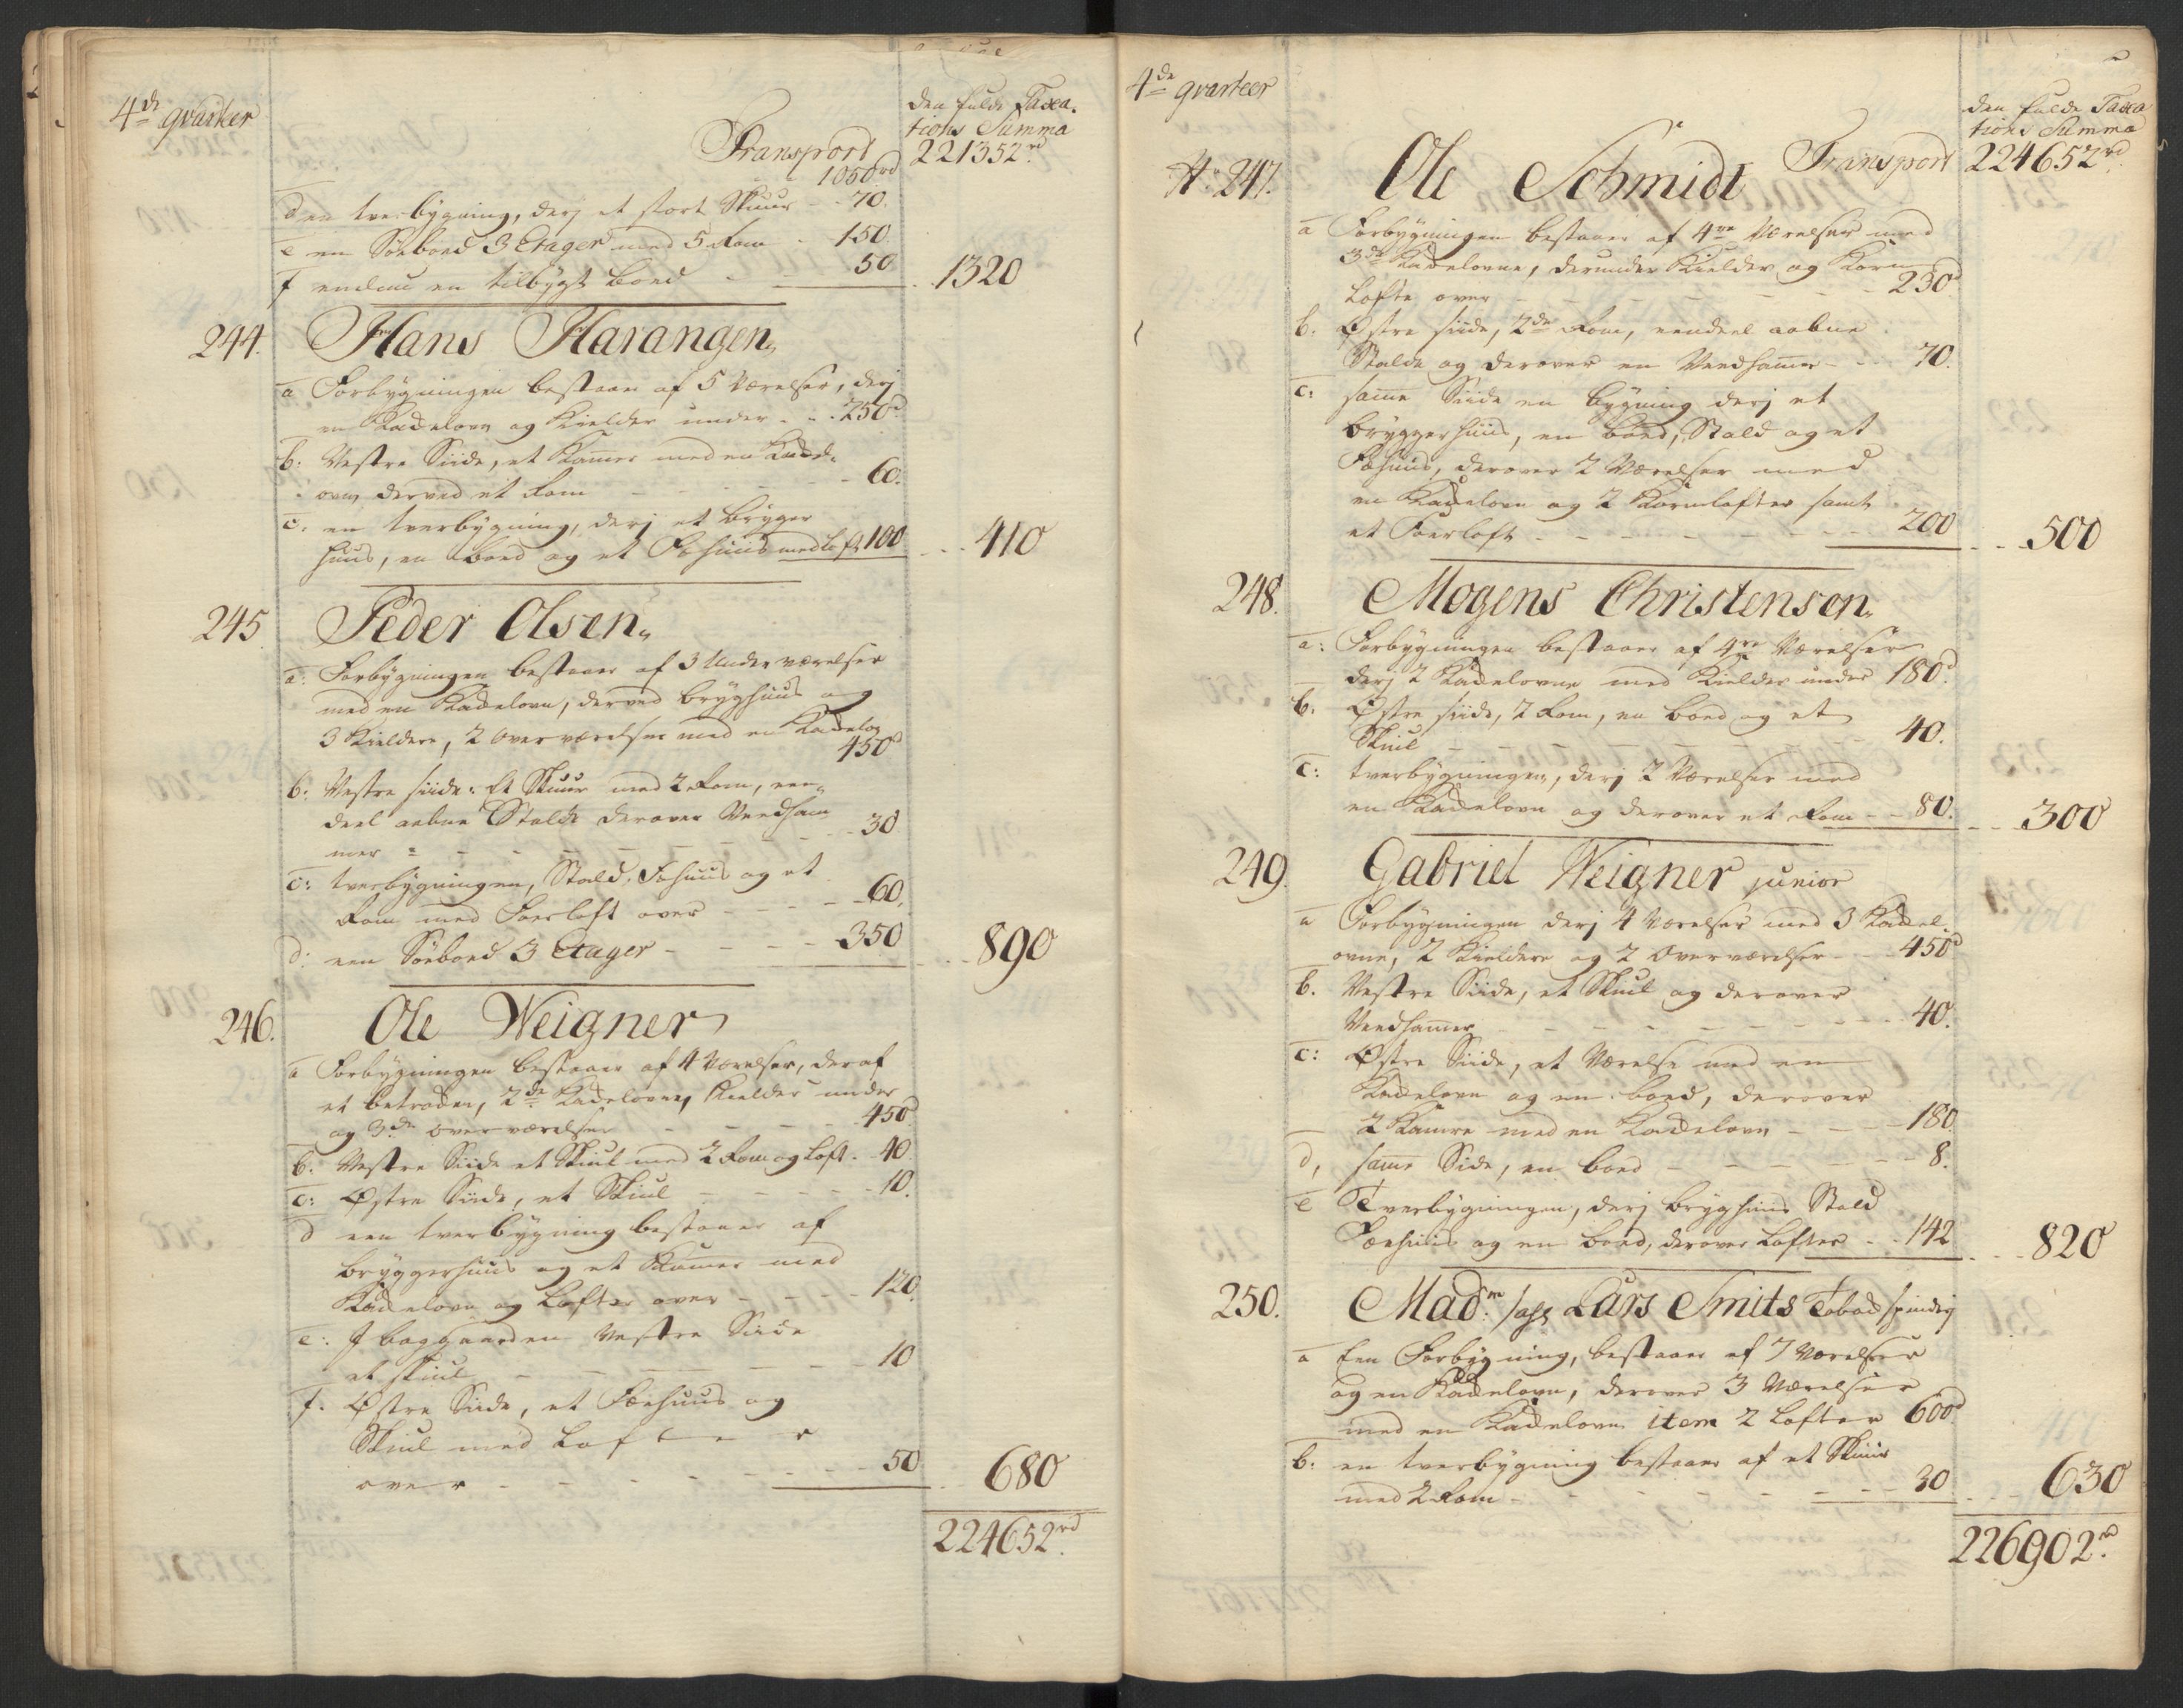 4de qvarteer
den fulde Taxa-
tions Summa
Transport 221352rd
1050rd
d en tverbygning, derj et stort Skuur - - 70.
e en Söeboed 3 Etager med 5 Rom - 150
f endnu en tilbygt boed - - 50 - - 1320
244. Hans Harangen
a Forbygningen bestaar af 5 værelser, derj
en Kackelovn og Kielder under - - 250rd
b: Vestre Siide, et Kamer med en Kackel-
ovn, derved et Rom - - 60.
c: en tverbygning, derj et brygger
huus, en boed og et Fæhuus med loft 100 - - 410
245 Peder Olsen
a: Forbygningen bestaar af 3 Underværelser
med en Kackelovn, derved bryghuus og
3 Kieldere, 2 Overværelser med en Kackelov
450rd
b: Vestre siide: Et Skuur med 2 Rom, een-
deel aabne Stald derover Veedham
mer - - 30
c: tverbygningen, Stald, Fæhuus og et
Rom med Foerloft over - - 60.
d: een Söeboed 3 Etager - - 350 - - 890
246. Ole Weigner
a Forbygningen bestaar af 4 værelser, deraf
et betrocken, 2de Kackelovne, Kielder under
og 3de overværelser - - 450rd
b: Vestre Siide et Skiul med 2 Rom og loft - 40.
c: Østre Siide, et Skiul - - 10.
d een tverbygning bestaaer af
bryggerhuus og et Kamer med
Kackelovn og Lofter over - - 120.
e: J baggaarden Vestre Siide
et skiul - - 10
f. Østre Siide, et Fæehuus og
Skiul med Lofter
over - - 50 - - 680
224652rd
4de qvarteer
den fulde Taxa
tions Summa
Transport 224652rd
No 247. Ole Schmidt
a Forbygningen bestaaer af 4re Værelser med
3de Kackelovne, derunder Kielder og Korn
Lofte over - - 230rd
b. Østre siide, 2de Rom, eendeel aabne
Stalde og derover en Veedhamer - - 70.
c: samme Siide en bygning derj et
bryggerhuus, en boed, Stald og et
Fæhuus, derover 2 Værelser med
en Kackelovn og 2 Kornlofter samt
et Foerloft - - 200 - - 500
248. Mogens Christensen
a: Forbygningen bestaaer af 4re Værelser
derj 2 Kackelovne med Kielder under 180rd
b. Østre siide, 2 Rom, en boed og et
Skiul - - 40.
c: tverbygningen, derj 2 Værelser med
en Kackelovn og derover et Rom - - 80. - - 300
249. Gabriel Weigner junior
a Forbygningen derj 4 værelser med 3 Kackel-
ovne, 2 Kieldere og 2 Overværelser - - 450rd
b. Vestre Siide, et Skiul og derover
Veedhamer - - 40.
c: Østre Siide, et Værelse med en
Kackelovn og en boed, derover
2 Kamre med en Kackelovn - - 180.
d, samme Side, en boed - - 8.
e Tverbygningen, derj bryghuus Stald
Fæehuus og en boed, derover Lofter - - 142 - - 820
250. Madm sahl Lars Smits Tobac spinderj
a Een Forbygning, bestaaer af 7 Værelser
og en Kackelovn, derover 3 Værelser
med en Kackelovn item 2 Lofter 600rd
b: en tverbygning bestaaer af et Skuur
med 2 Rom - - 30 - - 630
226902rd